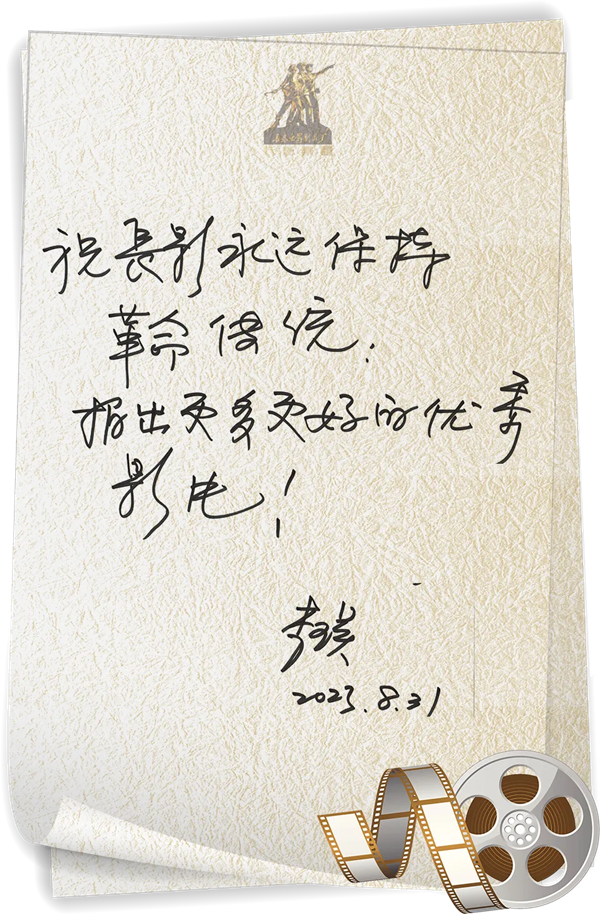 祝長影永远保持
革命传统；
拍出更多更好的优秀
影片！
2023.8.31